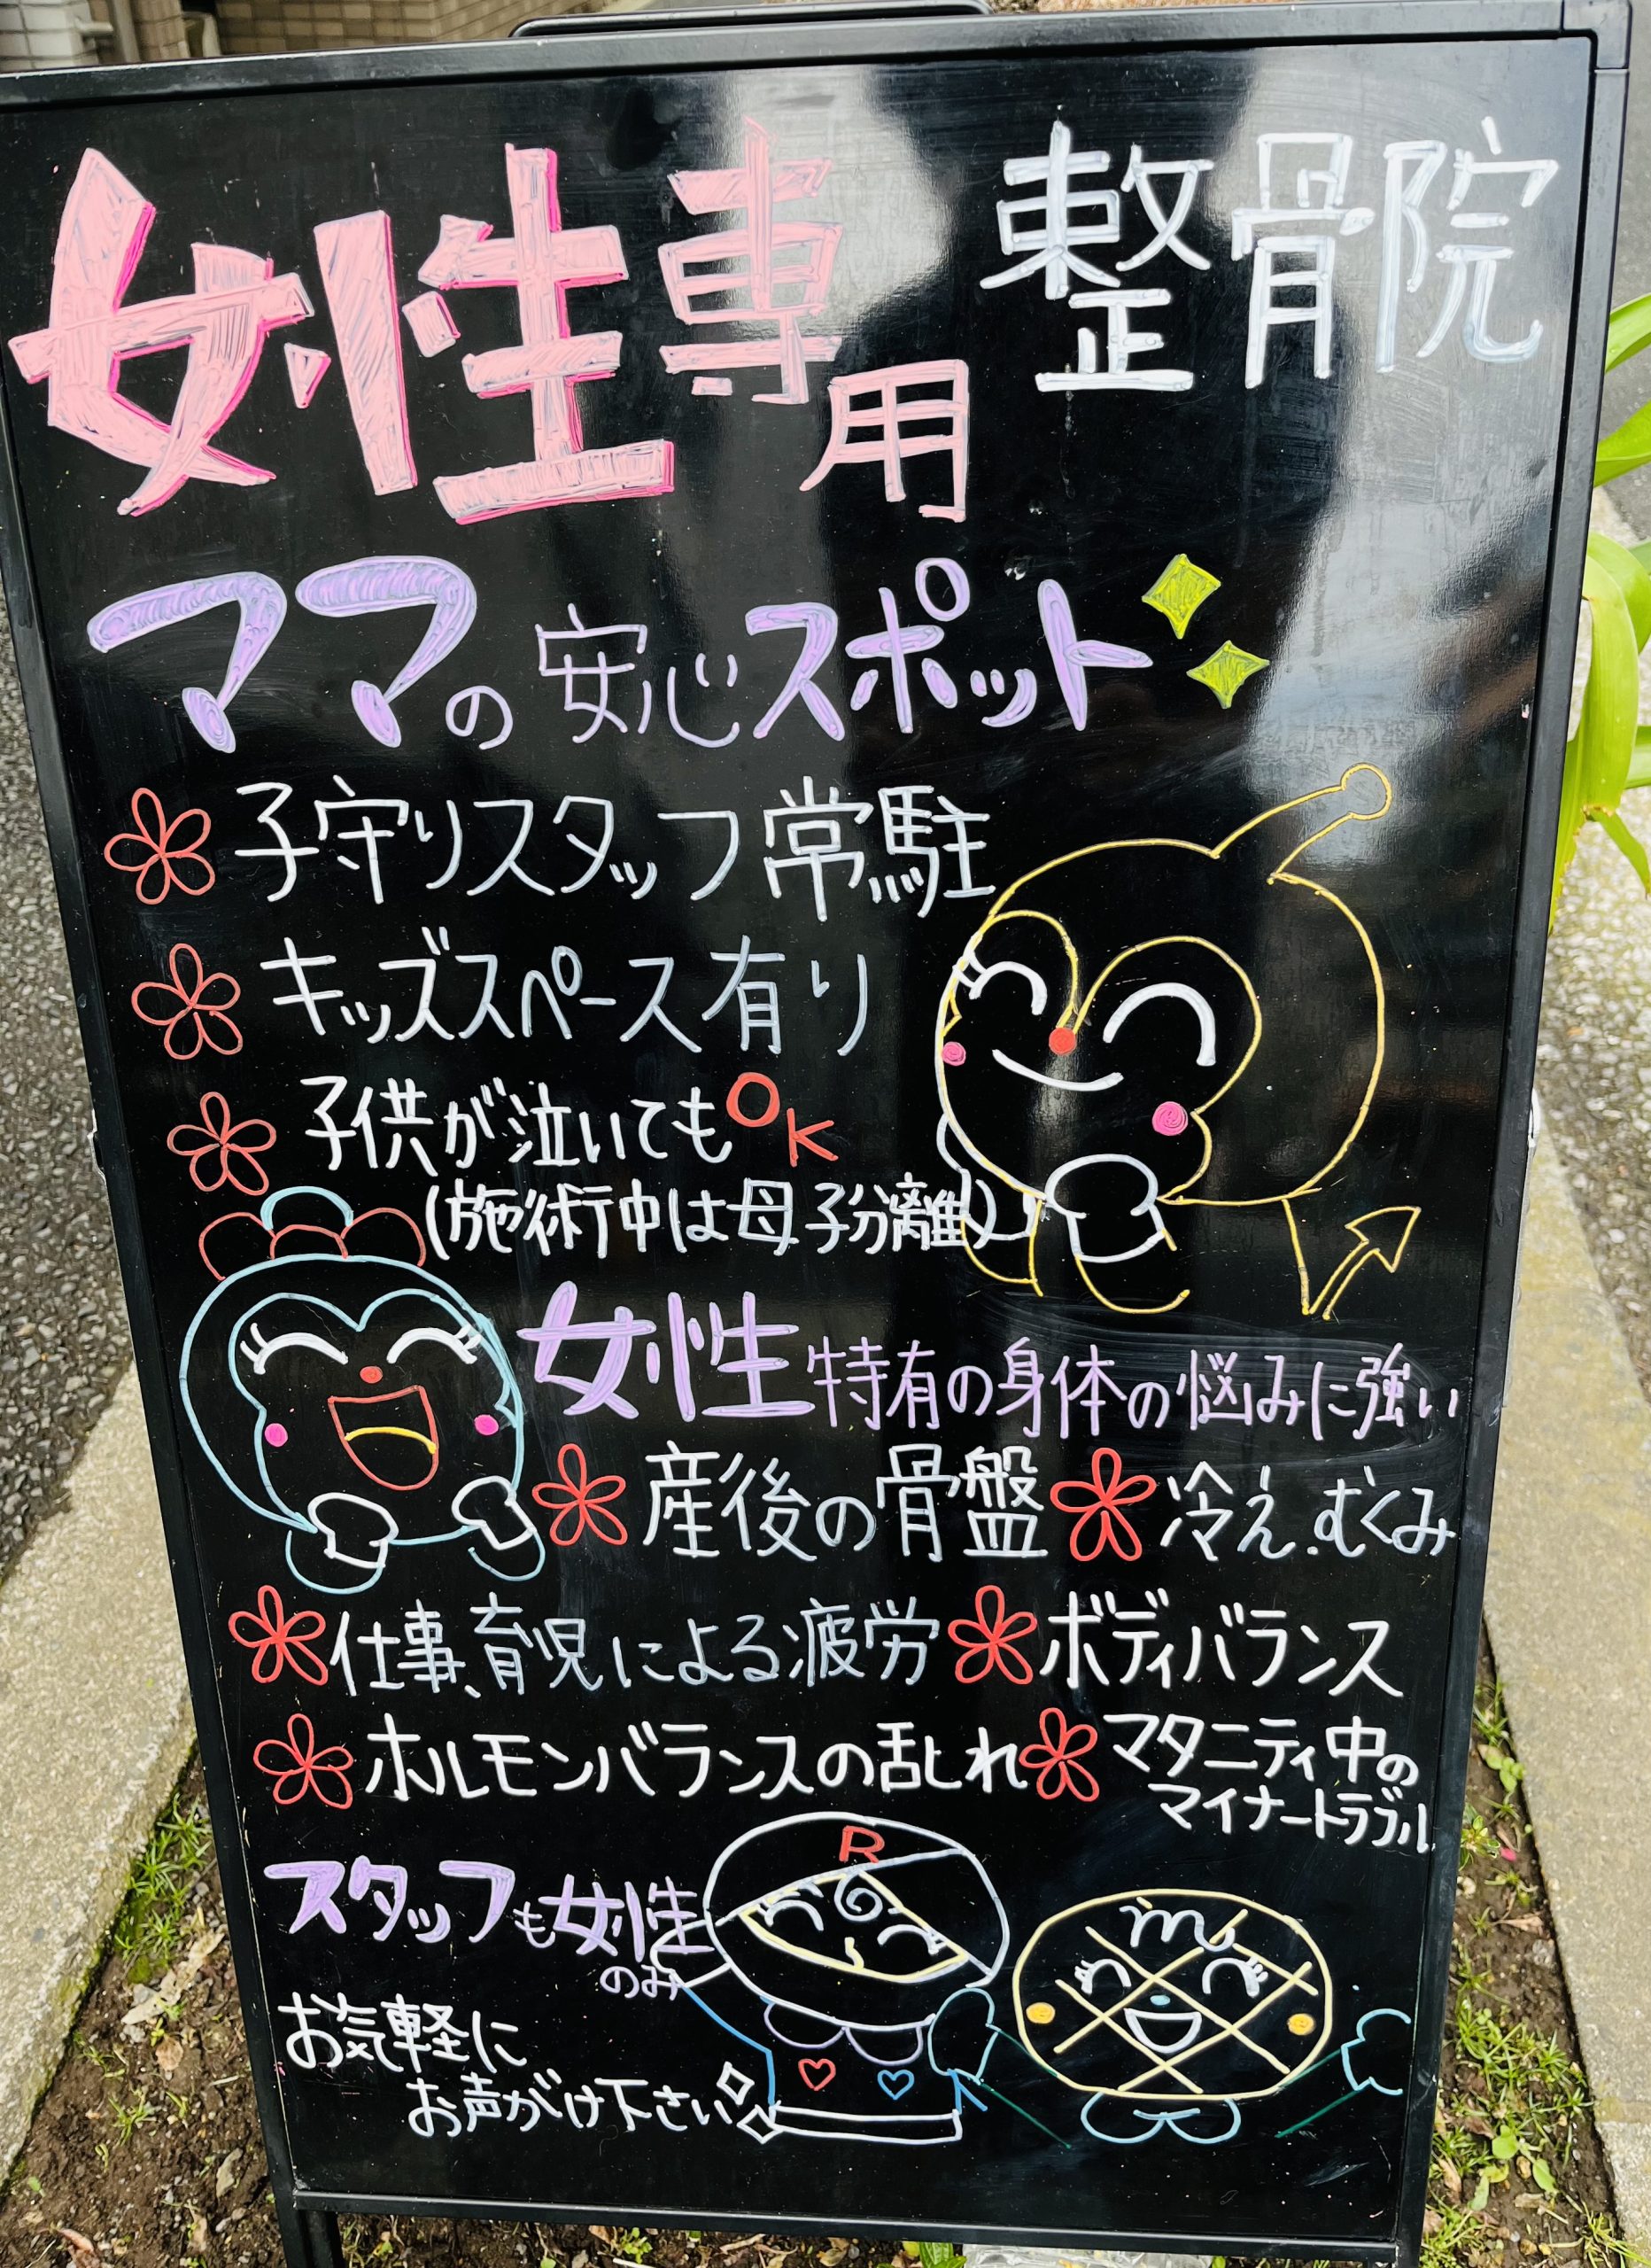 女性専用 整骨院
ママの安心スポット
子守りスタッフ常駐
キッズスペース有り
子供が泣いてもOK
(施術中は母子分離)
女性特有の身体の悩みに強い
産後の骨盤 冷え.むくみ
仕事、育児による疲労 ボディバランス
ホルモンバランスの乱れ マタニティ中の
マイナートラブル
R
スタッフも女性
のみ
m
お気軽に
お声がけ下さい